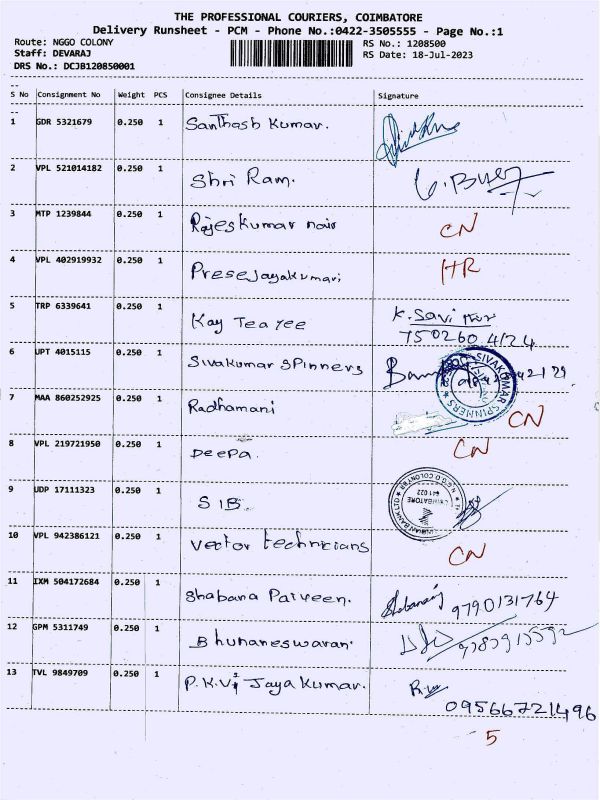 THE PROFESSIONAL COURIERS, COIMBATORE
Delivery Runsheet - PCM - Phone No.:0422-3505555 - Page No.:1
Route: NGGO COLONY RS No.: 1208500
Staff: DEVARAJ RS Date: 18-Jul-2023
DRS No.: DCJB120850001
S No Consignment No Weight PCS Consignee Details Signature
1 GDR 5321679 0.250 1 Santhosh Kumar.
2 VPL 521014182 0.250 1 Shri Ram.
3 MTP 1239844 0.250 1 Rajeskumar nair CN
4 VPL 402919932 0.250 1 Presejayakumari HR
5 TRP 6339641 0.250 1 Kay Tearee K. Savi
750260 4/24
6 UPT 4015115 0.250 1 Sivakumar spinners SIVAKUMAR SPINNERS
7 MAA 860252925 0.250 1 Radhamani CN
8 VPL 219721950 0.250 1 Deepa. CN
9 UDP 17111323 0.250 1 SIB. COIMBATORE 641 022
10 VPL 942386121 0.250 1 vector technicians CN
11 IXM 504172684 0.250 1 Shabana Parveen. 9790131764
12 GPM 5311749 0.250 1 Bhunaneswaran
13 TVL 9849709 0.250 1 P.K.V. Jaya Kumar.
09566721496
5